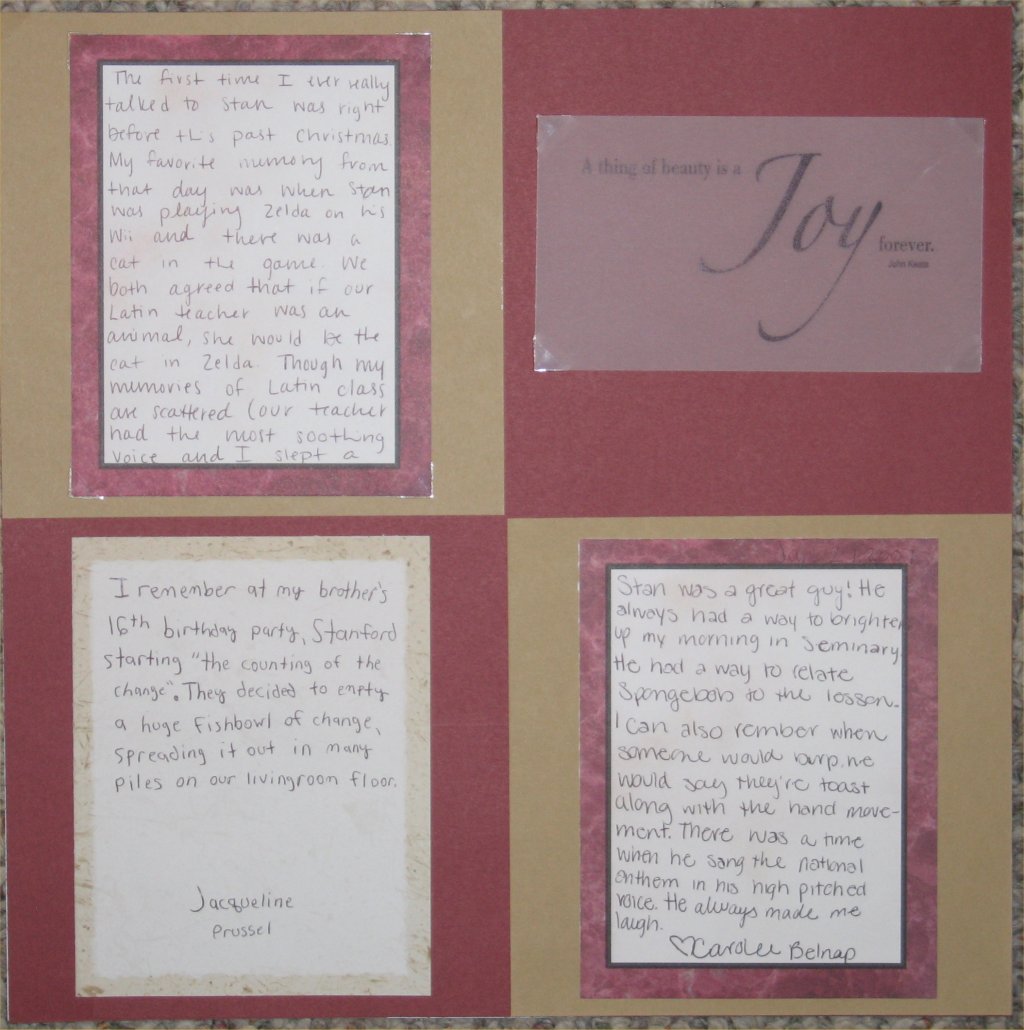 The first time I ever really
talked to Stan was right
before this past Christmas.
My favorite memory from
that day was when Stan
was playing Zelda on his
Wii and there was a
cat in the game. We
both agreed that if our
Latin teacher was an
animal, she would be the
cat in Zelda. Though my
memories of Latin class
are scattered (our teacher
had the most soothing
voice and I slept a
A thing of beauty is a
Joy
forever.
John Keats
I remember at my brother's
16th birthday party, Stanford
starting "the counting of the
change". They decided to empty
a huge fishbowl of change,
spreading it out in many
piles on our livingroom floor.
Jacqueline
Prussel
Stan was a great guy! He
always had a way to brighten
up my morning in Seminary.
He had a way to relate
Spongebob to the lesson.
I can also rember when
someone would burp. we
would say they're toast
along with the hand move-
ment. There was a time
when he sang the national
anthem in his high pitched
voice. He always made me
laugh.
♡Carolee Belnap